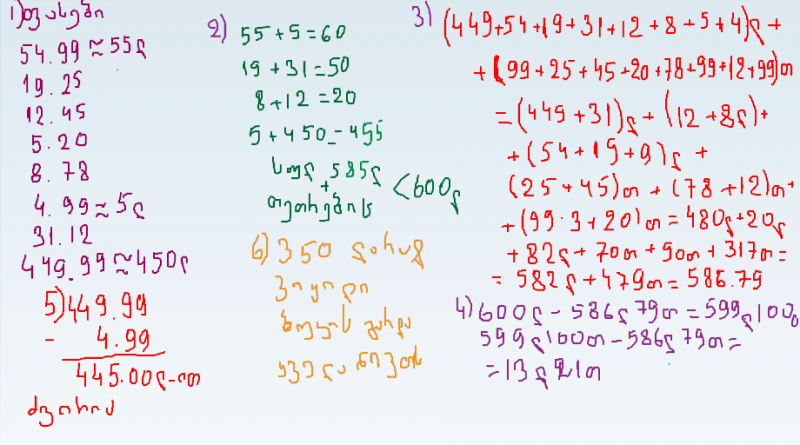 1) ფასები
54.99 ≈ 55ლ
19.25
12.45
5.20
8.78
4.99 ≈ 5ლ
31.12
449.99 ≈ 450ლ
5) 449.99
- 4.99
445.00ლ-ით
ძვირია
2)
55 + 5 = 60
19 + 31 = 50
8 + 12 = 20
5 + 450 - 455
სულ 585ლ
+ < 600ლ
თეთრების
6) 350 ლარად
ვიყიდი
გარდა
ყველა ნივთს
3) (449+54+19+31+12+8+5+4)ლ+
+(99+25+45+20+78+99+12+99)თ
=(449+31)ლ+(12+8ლ)+
+(54+19+9)ლ+
(25+45)თ+(78+12)თ+
+(99·3+20)თ=480ლ+20ლ
+82ლ+70თ+90თ+317თ=
=582ლ+479თ=586.79
4) 600ლ-586ლ79თ=599ლ100თ
599ლ100თ-586ლ79თ=
=13ლ21თ